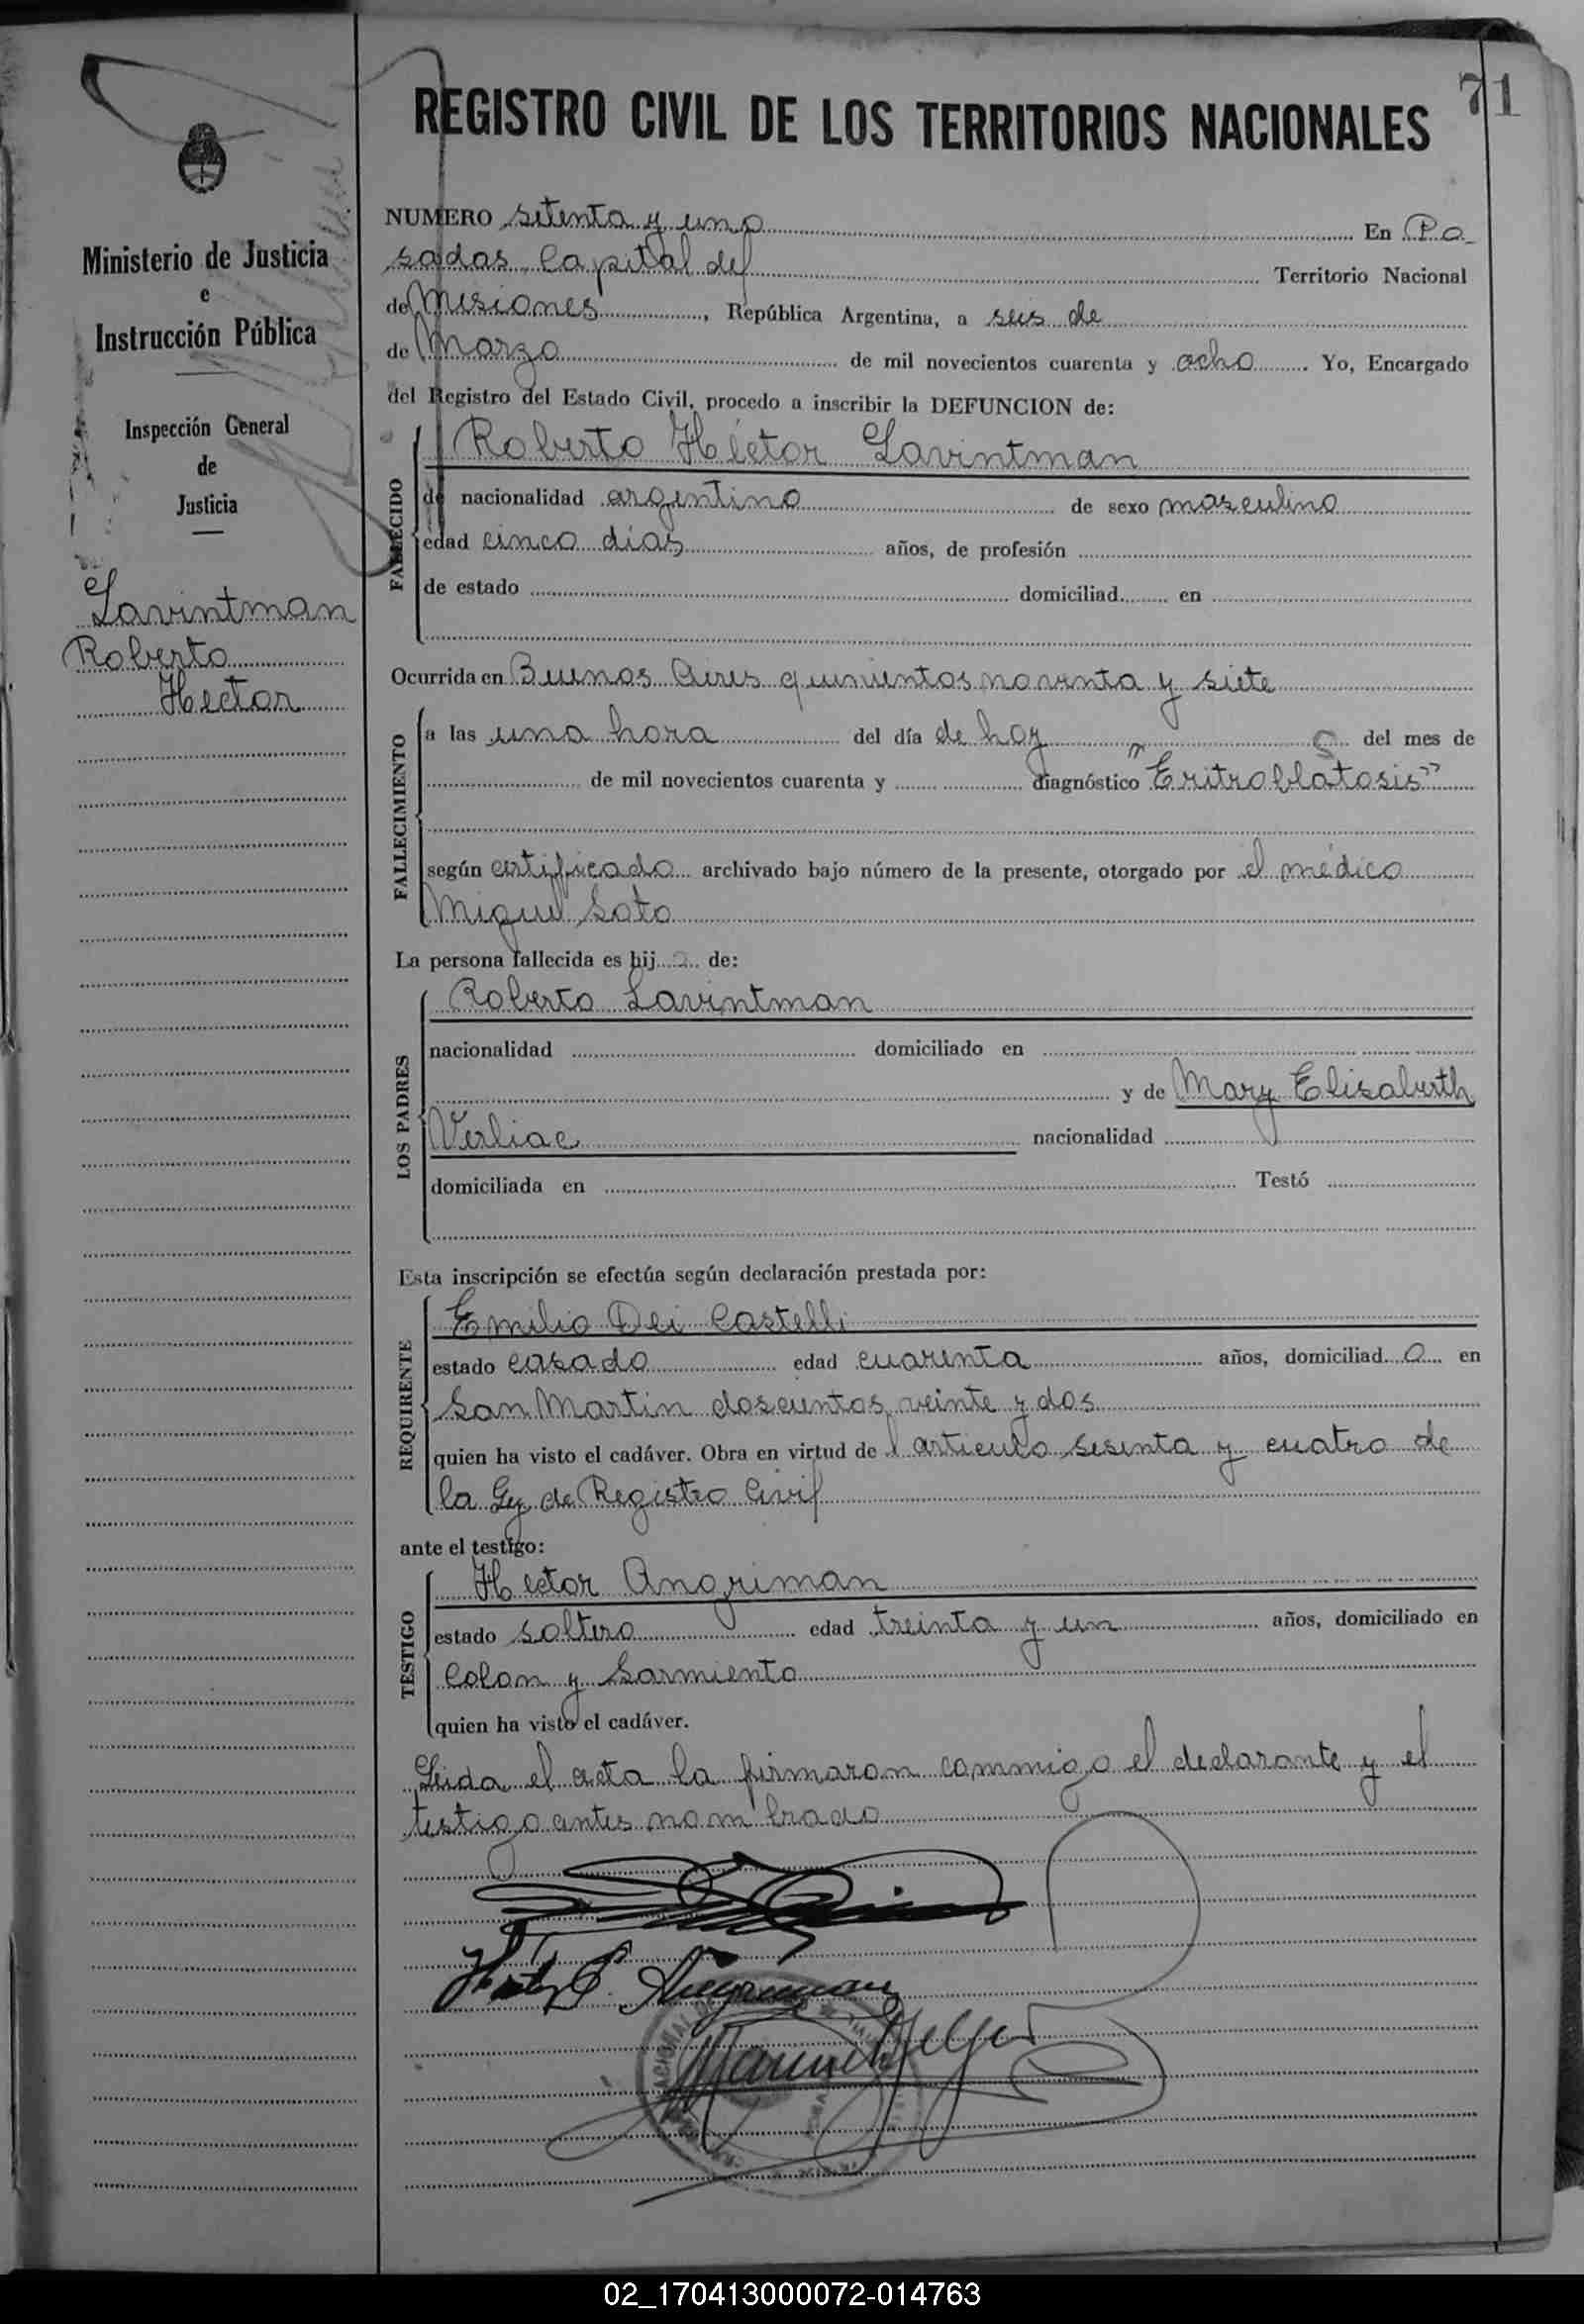 71
REGISTRO CIVIL DE LOS TERRITORIOS NACIONALES
Ministerio de Justicia
e
Instrucción Pública
Inspección General
de
Justicia
Lavintman
Roberto
Hector
NUMERO setenta y uno En Po
sadas, Capital del Territorio Nacional
de Misiones, República Argentina, a seis de
de Marzo de mil novecientos cuarenta y ocho. Yo, Encargado
del Registro del Estado Civil, procedo a inscribir la DEFUNCION de:
FALLECIDO
Roberto Héctor Lavintman
de nacionalidad argentino de sexo masculino
edad cinco días años, de profesión
de estado domiciliad en
Ocurrida en Buenos Aires quinientos noventa y siete
FALLECIMIENTO
a las una hora del día de hoy del mes de
de mil novecientos cuarenta y diagnóstico "Eritroblatosis"
según certificado archivado bajo número de la presente, otorgado por el médico
Miguel Soto
La persona fallecida es hijo de:
LOS PADRES
Roberto Lavintman
nacionalidad domiciliado en
y de Mary Elisabeth
Verliac nacionalidad
domiciliada en Testó
Esta inscripción se efectúa según declaración prestada por:
REQUIRENTE
Emilio Dei Castelli
estado casado edad cuarenta años, domiciliado en
San Martin doscientos veinte y dos
quien ha visto el cadáver. Obra en virtud del articulo sesenta y cuatro de
la Ley de Registro Civil
ante el testigo:
TESTIGO
Hector Angriman
estado soltero edad treinta y un años, domiciliado en
Colon y Sarmiento
quien ha visto el cadáver.
Leida el acta la firmaron conmigo el declarante y el
testigo antes nombrado
02_170413000072-014763